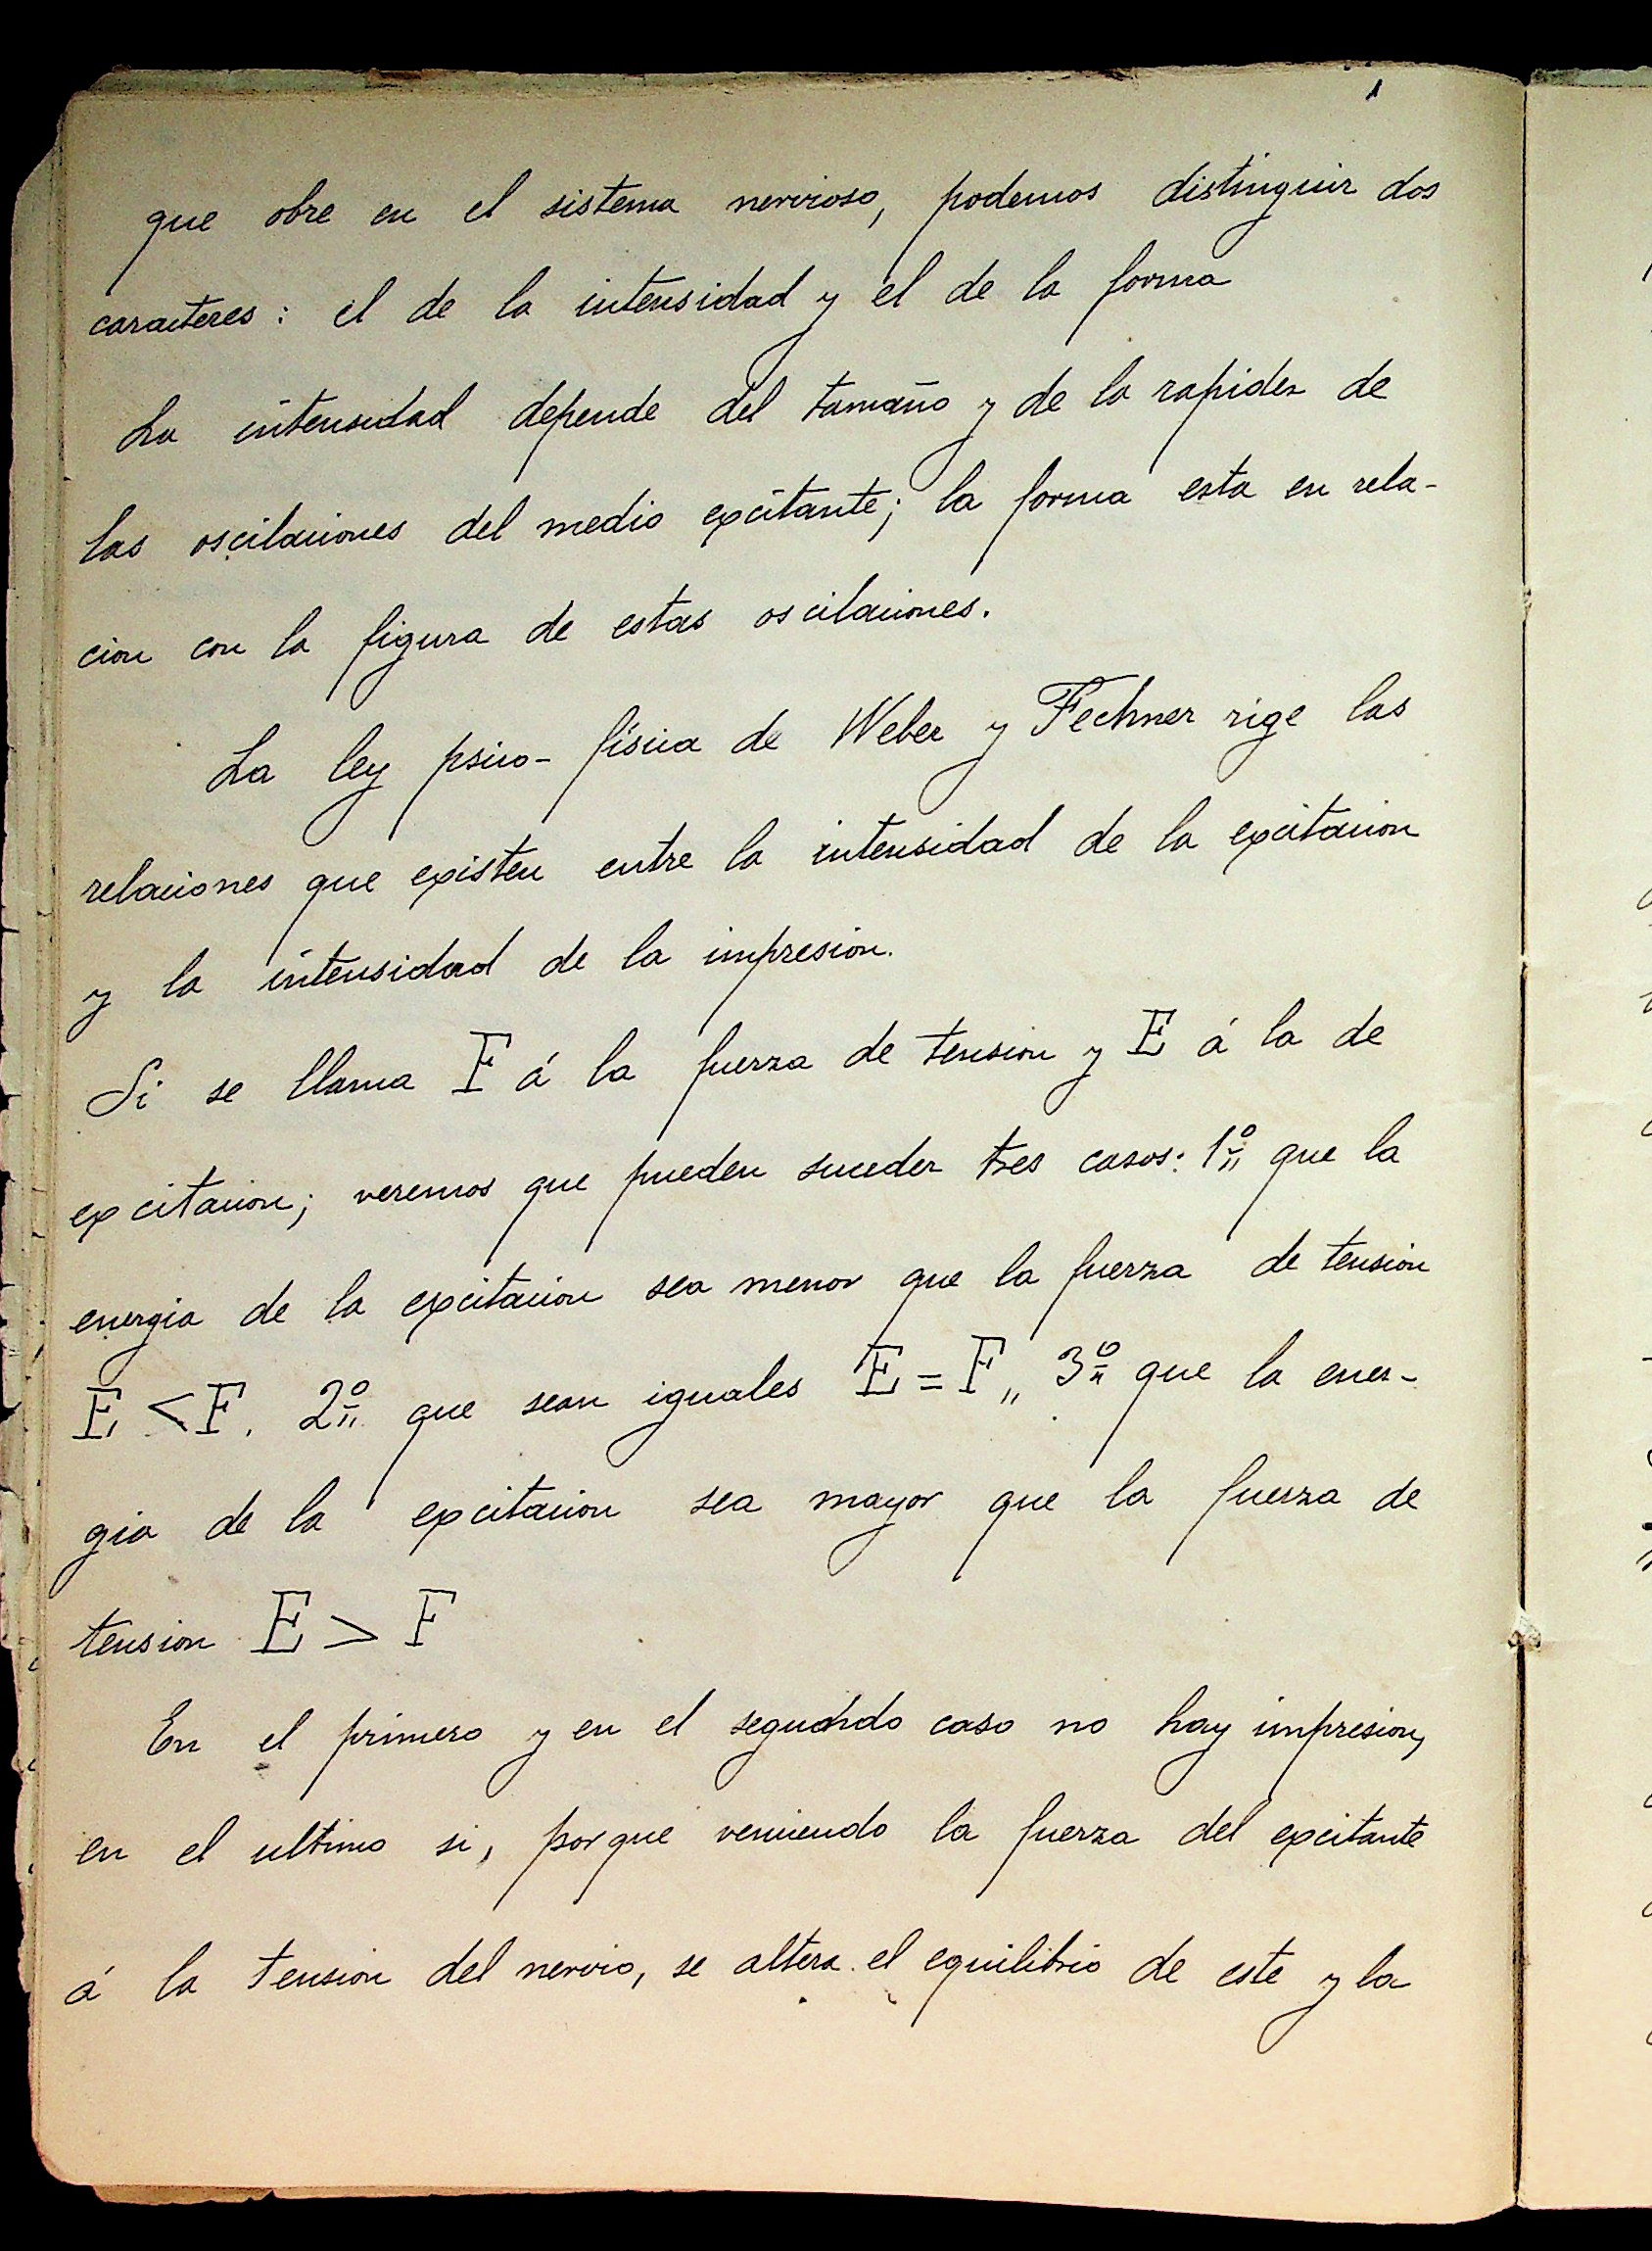 que obre en el sistema nervioso, podemos distinguir dos
caracteres: el de la intensidad y el de la forma
La intensidad depende del tamaño y de la rapidez de
las oscilaciones del medio excitante; la forma esta en rela-
cion con la figura de estas oscilaciones.
La ley psico-física de Weber y Fechner rige las
relaciones que existen entre la intensidad de la excitacion
y la intensidad de la impresion.
Si se llama F á la fuerza de tension y E á la de
excitacion; veremos que pueden suceder tres casos: 1º que la
energia de la excitacion sea menor que la fuerza de tension
E < F. 2º que sean iguales E = F,, 3º que la ener-
gia de la excitacion sea mayor que la fuerza de
tension E > F
En el primero y en el segundo caso no hay impresion,
en el ultimo si, porque venciendo la fuerza del excitante
á la tension del nervio, se altera el equilibrio de este y la